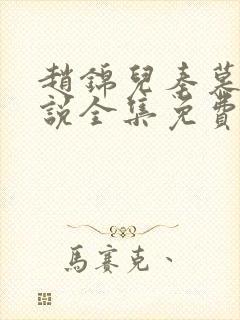 趙錦兒秦慕
說全集免費
馬賽克、